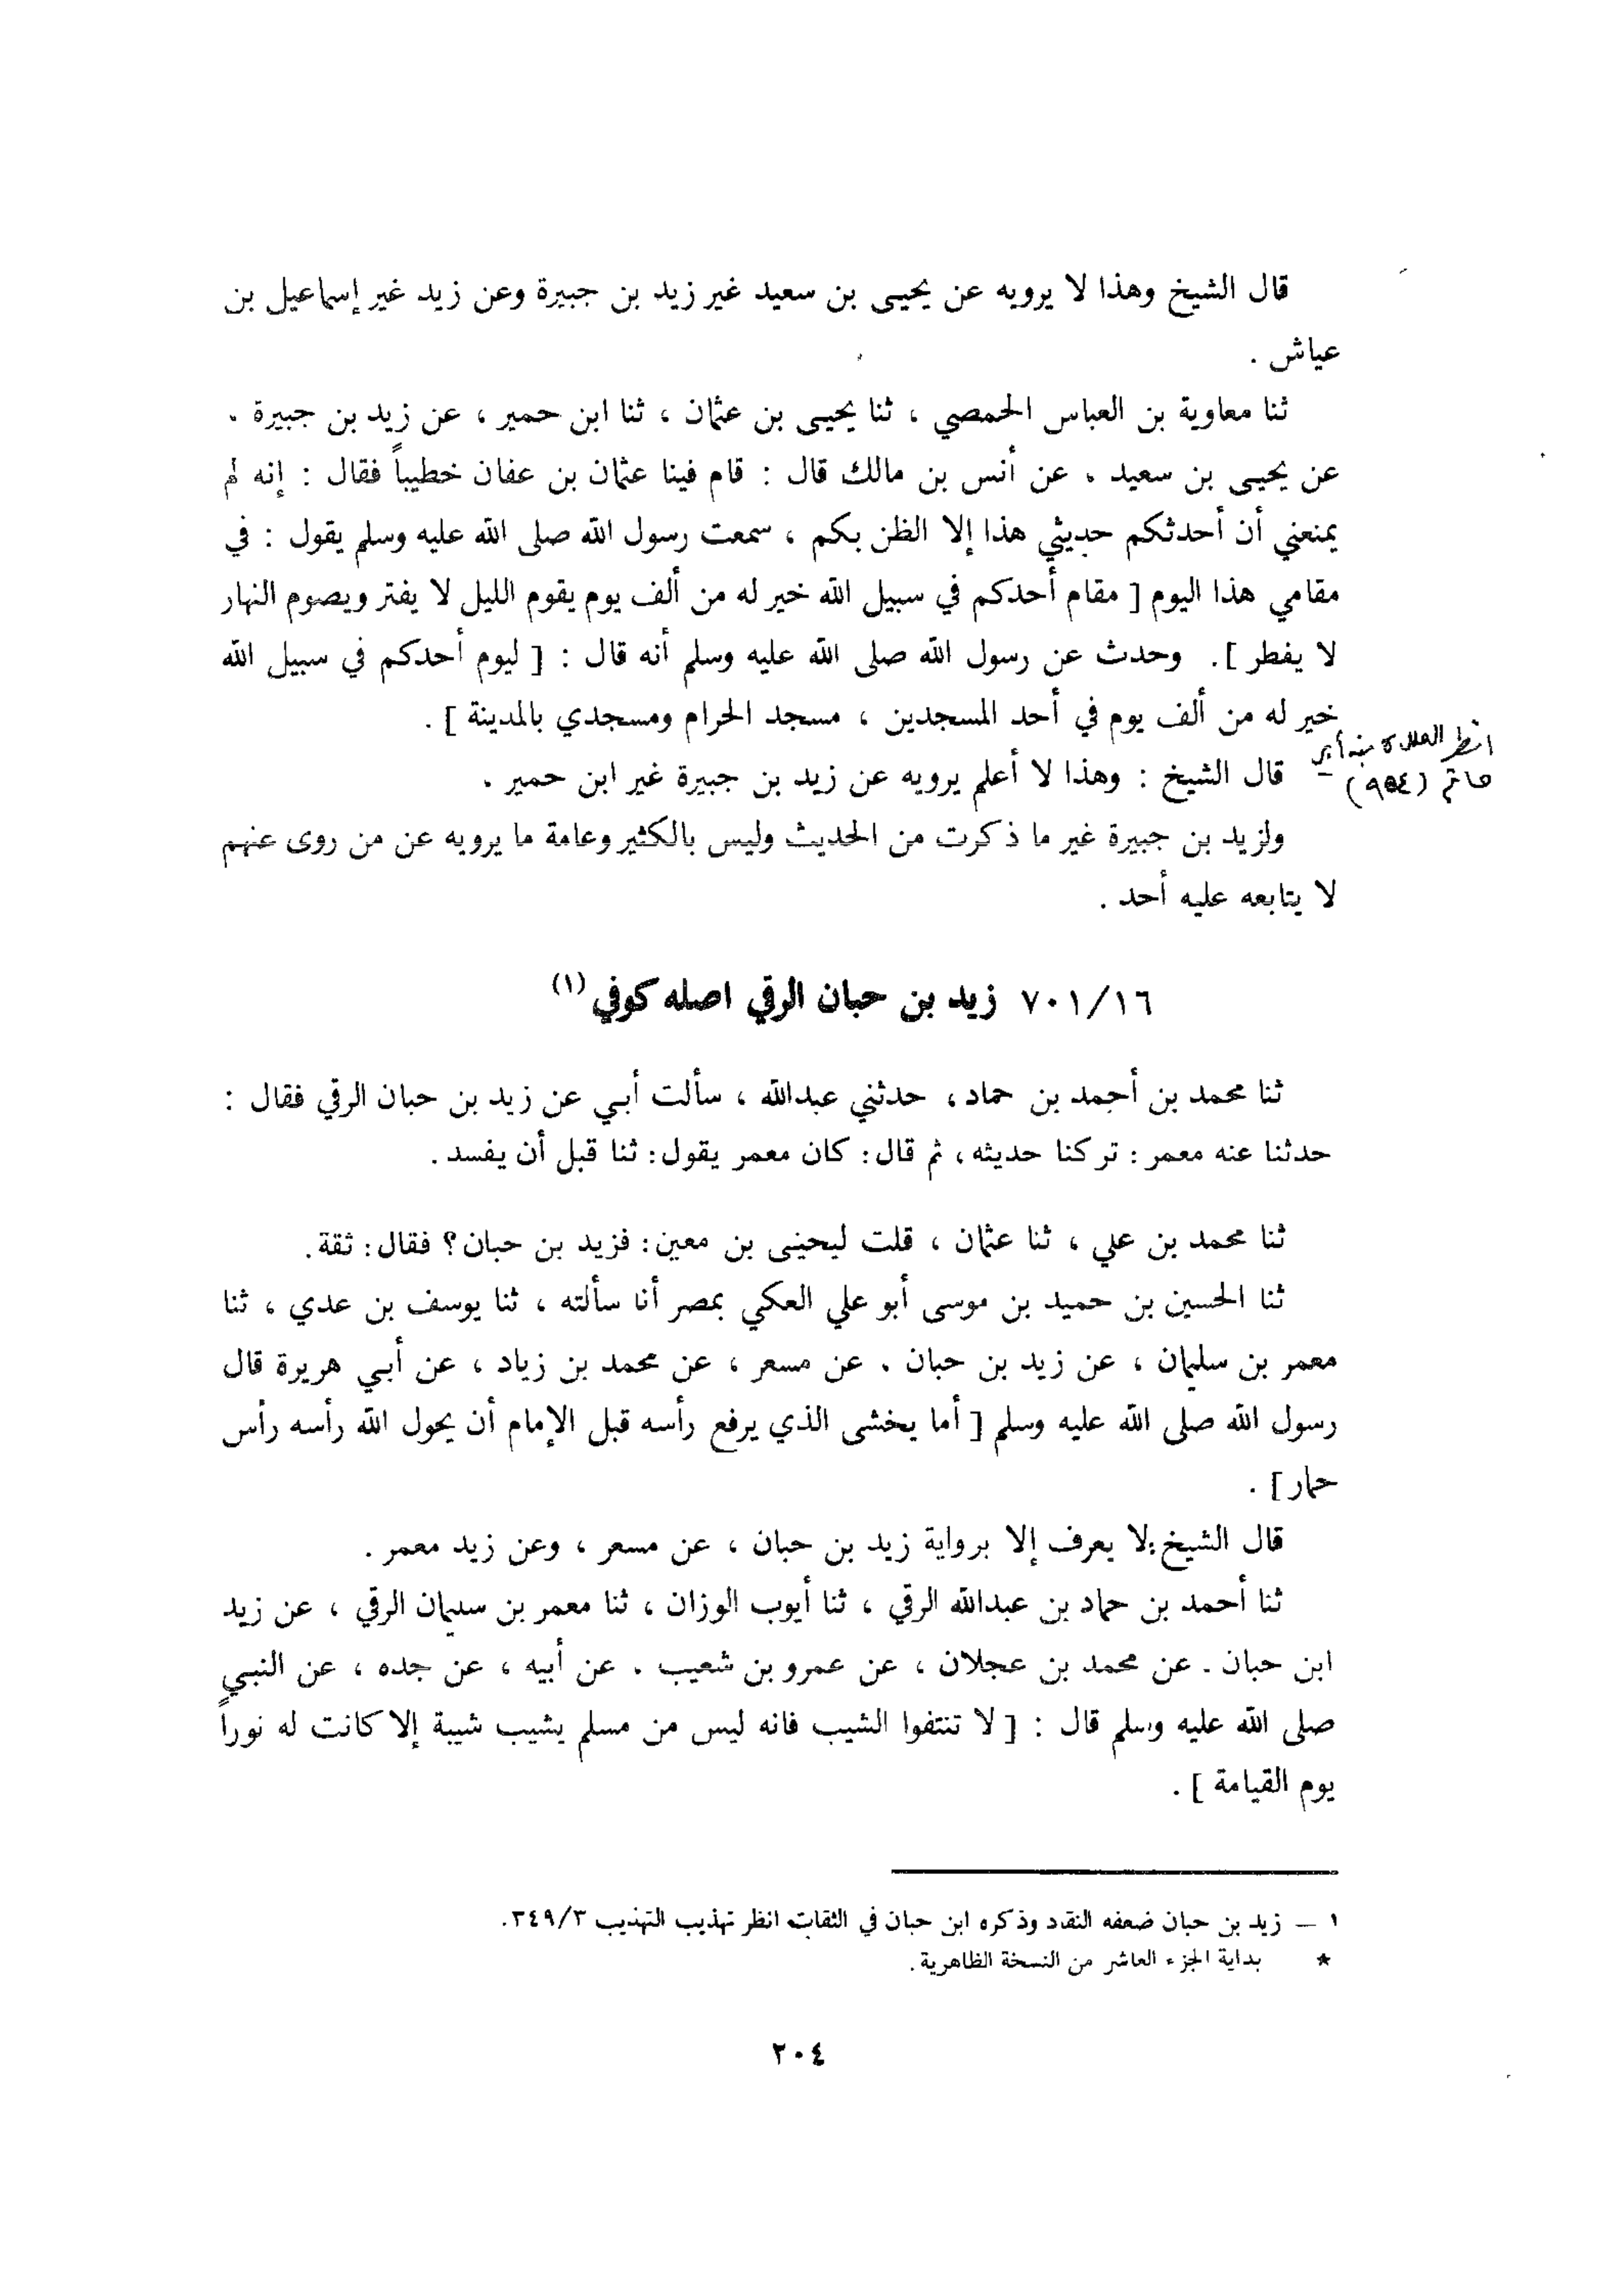 قال الشيخ وهذا لا يرويه عن يحيى بن سعيد غير زيد بن جبيرة وعن زيد غير إسماعيل بن
عياش .
ثنا معاوية بن العباس الحمصي ، ثنا يحيى بن عثمان ، ثنا ابن حمير ، عن زيد بن جبيرة .
عن يحيى بن سعيد . عن أنس بن مالك قال : قام فينا عثمان بن عفان خطيباً فقال : إنه لم
يمنعني أن أحدثكم حديثي هذا إلا الظن بكم ، سمعت رسول الله صلى الله عليه وسلم يقول : في
مقامي هذا اليوم [ مقام أحدكم في سبيل الله خير له من ألف يوم يقوم الليل لا يفتر ويصوم النهار
لا يفطر ] . وحدث عن رسول الله صلى الله عليه وسلم أنه قال : [ ليوم أحدكم في سبيل الله
خير له من ألف يوم في أحد المسجدين ، مسجد الحرام ومسجدي بالمدينة ] .
انظر العلل لابن أبي
حاتم (954) -
قال الشيخ : وهذا لا أعلم يرويه عن زيد بن جبيرة غير ابن حمير .
ولزيد بن جبيرة غير ما ذكرت من الحديث وليس بالكثير وعامة ما يرويه عن من روى عنهم
لا يتابعه عليه أحد .
٧٠١/١٦ زيد بن حبان الرقي اصله كوفي (١)
ثنا محمد بن أحمد بن حماد ، حدثني عبدالله ، سألت أبي عن زيد بن حبان الرقي فقال :
حدثنا عنه معمر : تركنا حديثه ، ثم قال : كان معمر يقول : ثنا قبل أن يفسد .
ثنا محمد بن علي ، ثنا عثمان ، قلت ليحيى بن معين : فزيد بن حبان ؟ فقال : ثقة .
ثنا الحسين بن حميد بن موسى أبو علي العكي بمصر أنا سألته ، ثنا يوسف بن عدي ، ثنا
معمر بن سليمان ، عن زيد بن حبان . عن مسعر ، عن محمد بن زياد ، عن أبي هريرة قال
رسول الله صلى الله عليه وسلم [ أما يخشى الذي يرفع رأسه قبل الإمام أن يحول الله رأسه رأس
حمار ] .
قال الشيخ : لا يعرف إلا برواية زيد بن حبان ، عن مسعر ، وعن زيد معمر .
ثنا أحمد بن حماد بن عبدالله الرقي ، ثنا أيوب الوزان ، ثنا معمر بن سليمان الرقي ، عن زيد
ابن حبان . عن محمد بن عجلان ، عن عمرو بن شعيب . عن أبيه ، عن جده ، عن النبي
صلى الله عليه وسلم قال : [ لا تنتفوا الشيب فانه ليس من مسلم يشيب شيبة إلا كانت له نوراً
يوم القيامة ] .
١ — زيد بن حبان ضعفه النقاد وذكره ابن حبان في الثقات انظر تهذيب التهذيب ٣٤٩/٣ .
* بداية الجزء العاشر من النسخة الظاهرية .
٢٠٤